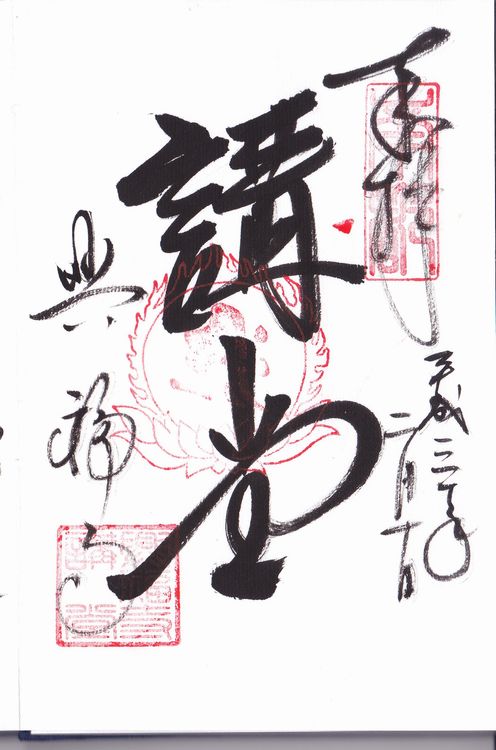 奉拝
平成三年
二月十日
講堂
興福寺